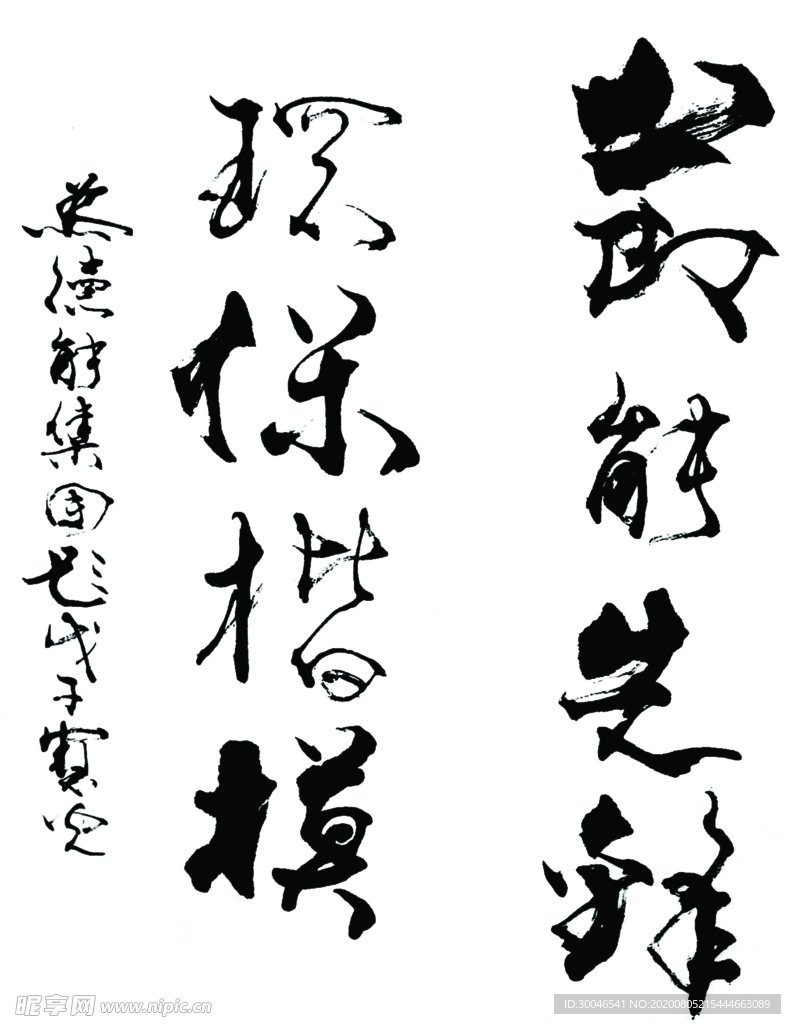 節能先鋒
環保楷模
德能集团
戊子
昵享网 www.nipic.cn
ID:30046541 NO:20200805215444663089